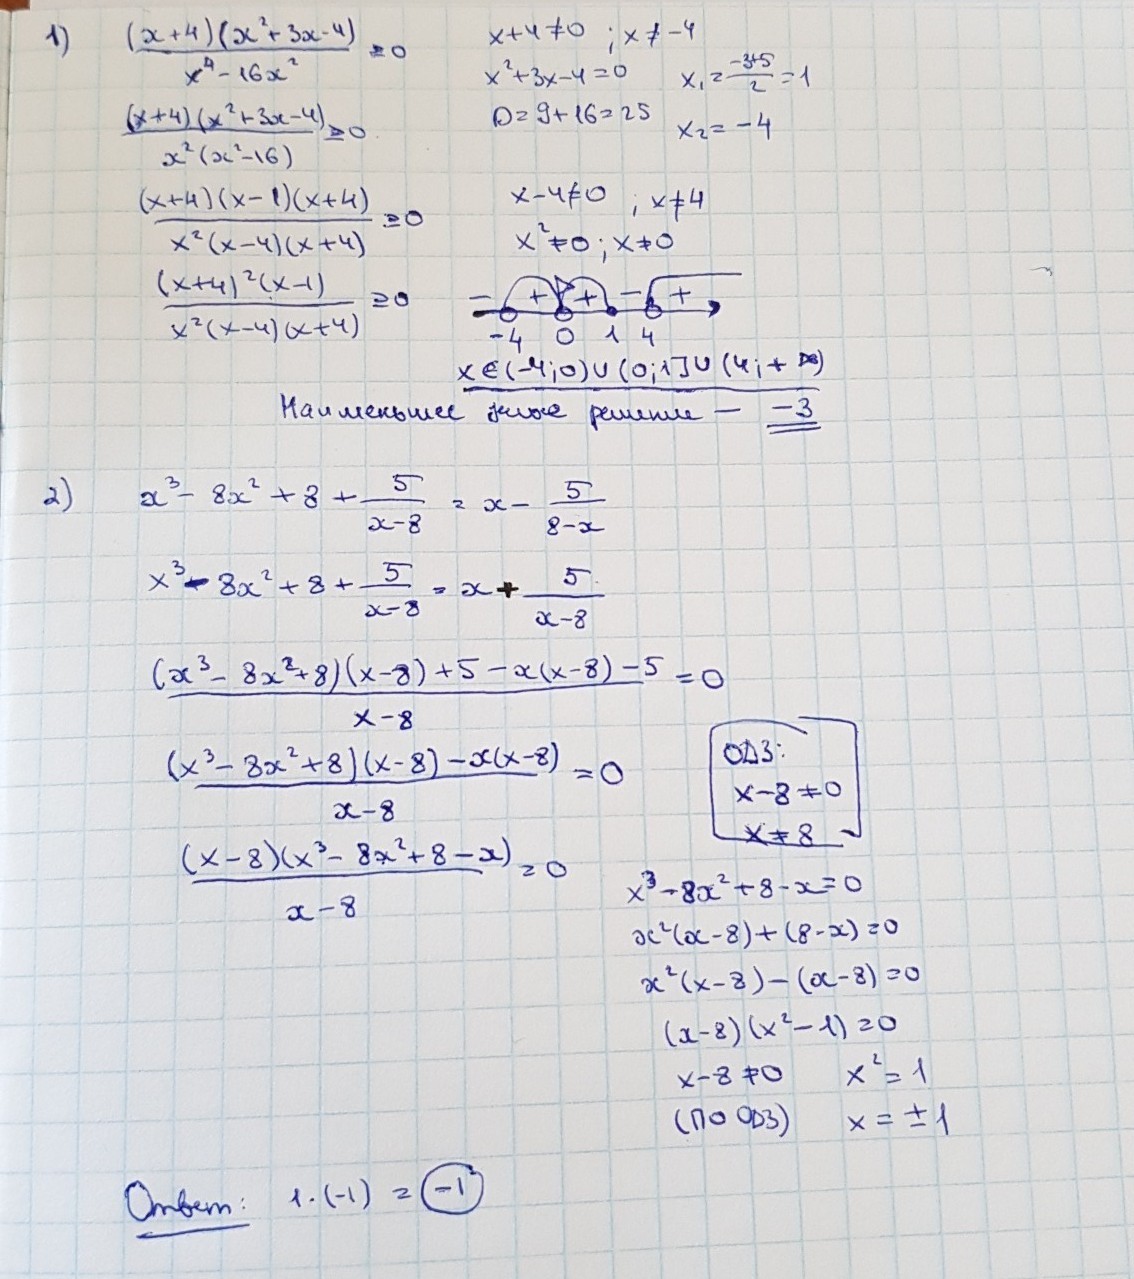 1) (x+4)(x²+3x-4) / x⁴-16x² ≥0
x+4≠0 ; x≠-4
(x+4)(x²+3x-4) / x²(x²-16) ≥0
x²+3x-4=0 x₁=(-3+5)/2=1
D=9+16=25 x₂=-4
(x+4)(x-1)(x+4) / x²(x-4)(x+4) ≥0
x-4≠0 ; x≠4
x²≠0 ; x≠0
(x+4)²(x-1) / x²(x-4)(x+4) ≥0
- + + - +
-4 0 1 4
x∈(-4;0)∪(0;1]∪(4;+∞)
Наименьшее целое решение — -3
2) x³-8x²+8+5/(x-8) = x-5/(8-x)
x³-8x²+8+5/(x-8) = x+5/(x-8)
(x³-8x²+8)(x-8)+5-x(x-8)-5 / x-8 =0
(x³-8x²+8)(x-8)-x(x-8) / x-8 =0
(x-8)(x³-8x²+8-x) / x-8 =0
ОДЗ:
x-8≠0
x≠8
x³-8x²+8-x=0
x²(x-8)+(8-x)=0
x²(x-8)-(x-8)=0
(x-8)(x²-1)=0
x-8≠0 x²=1
(ПО ОДЗ) x=±1
Ответ: 1·(-1) = -1